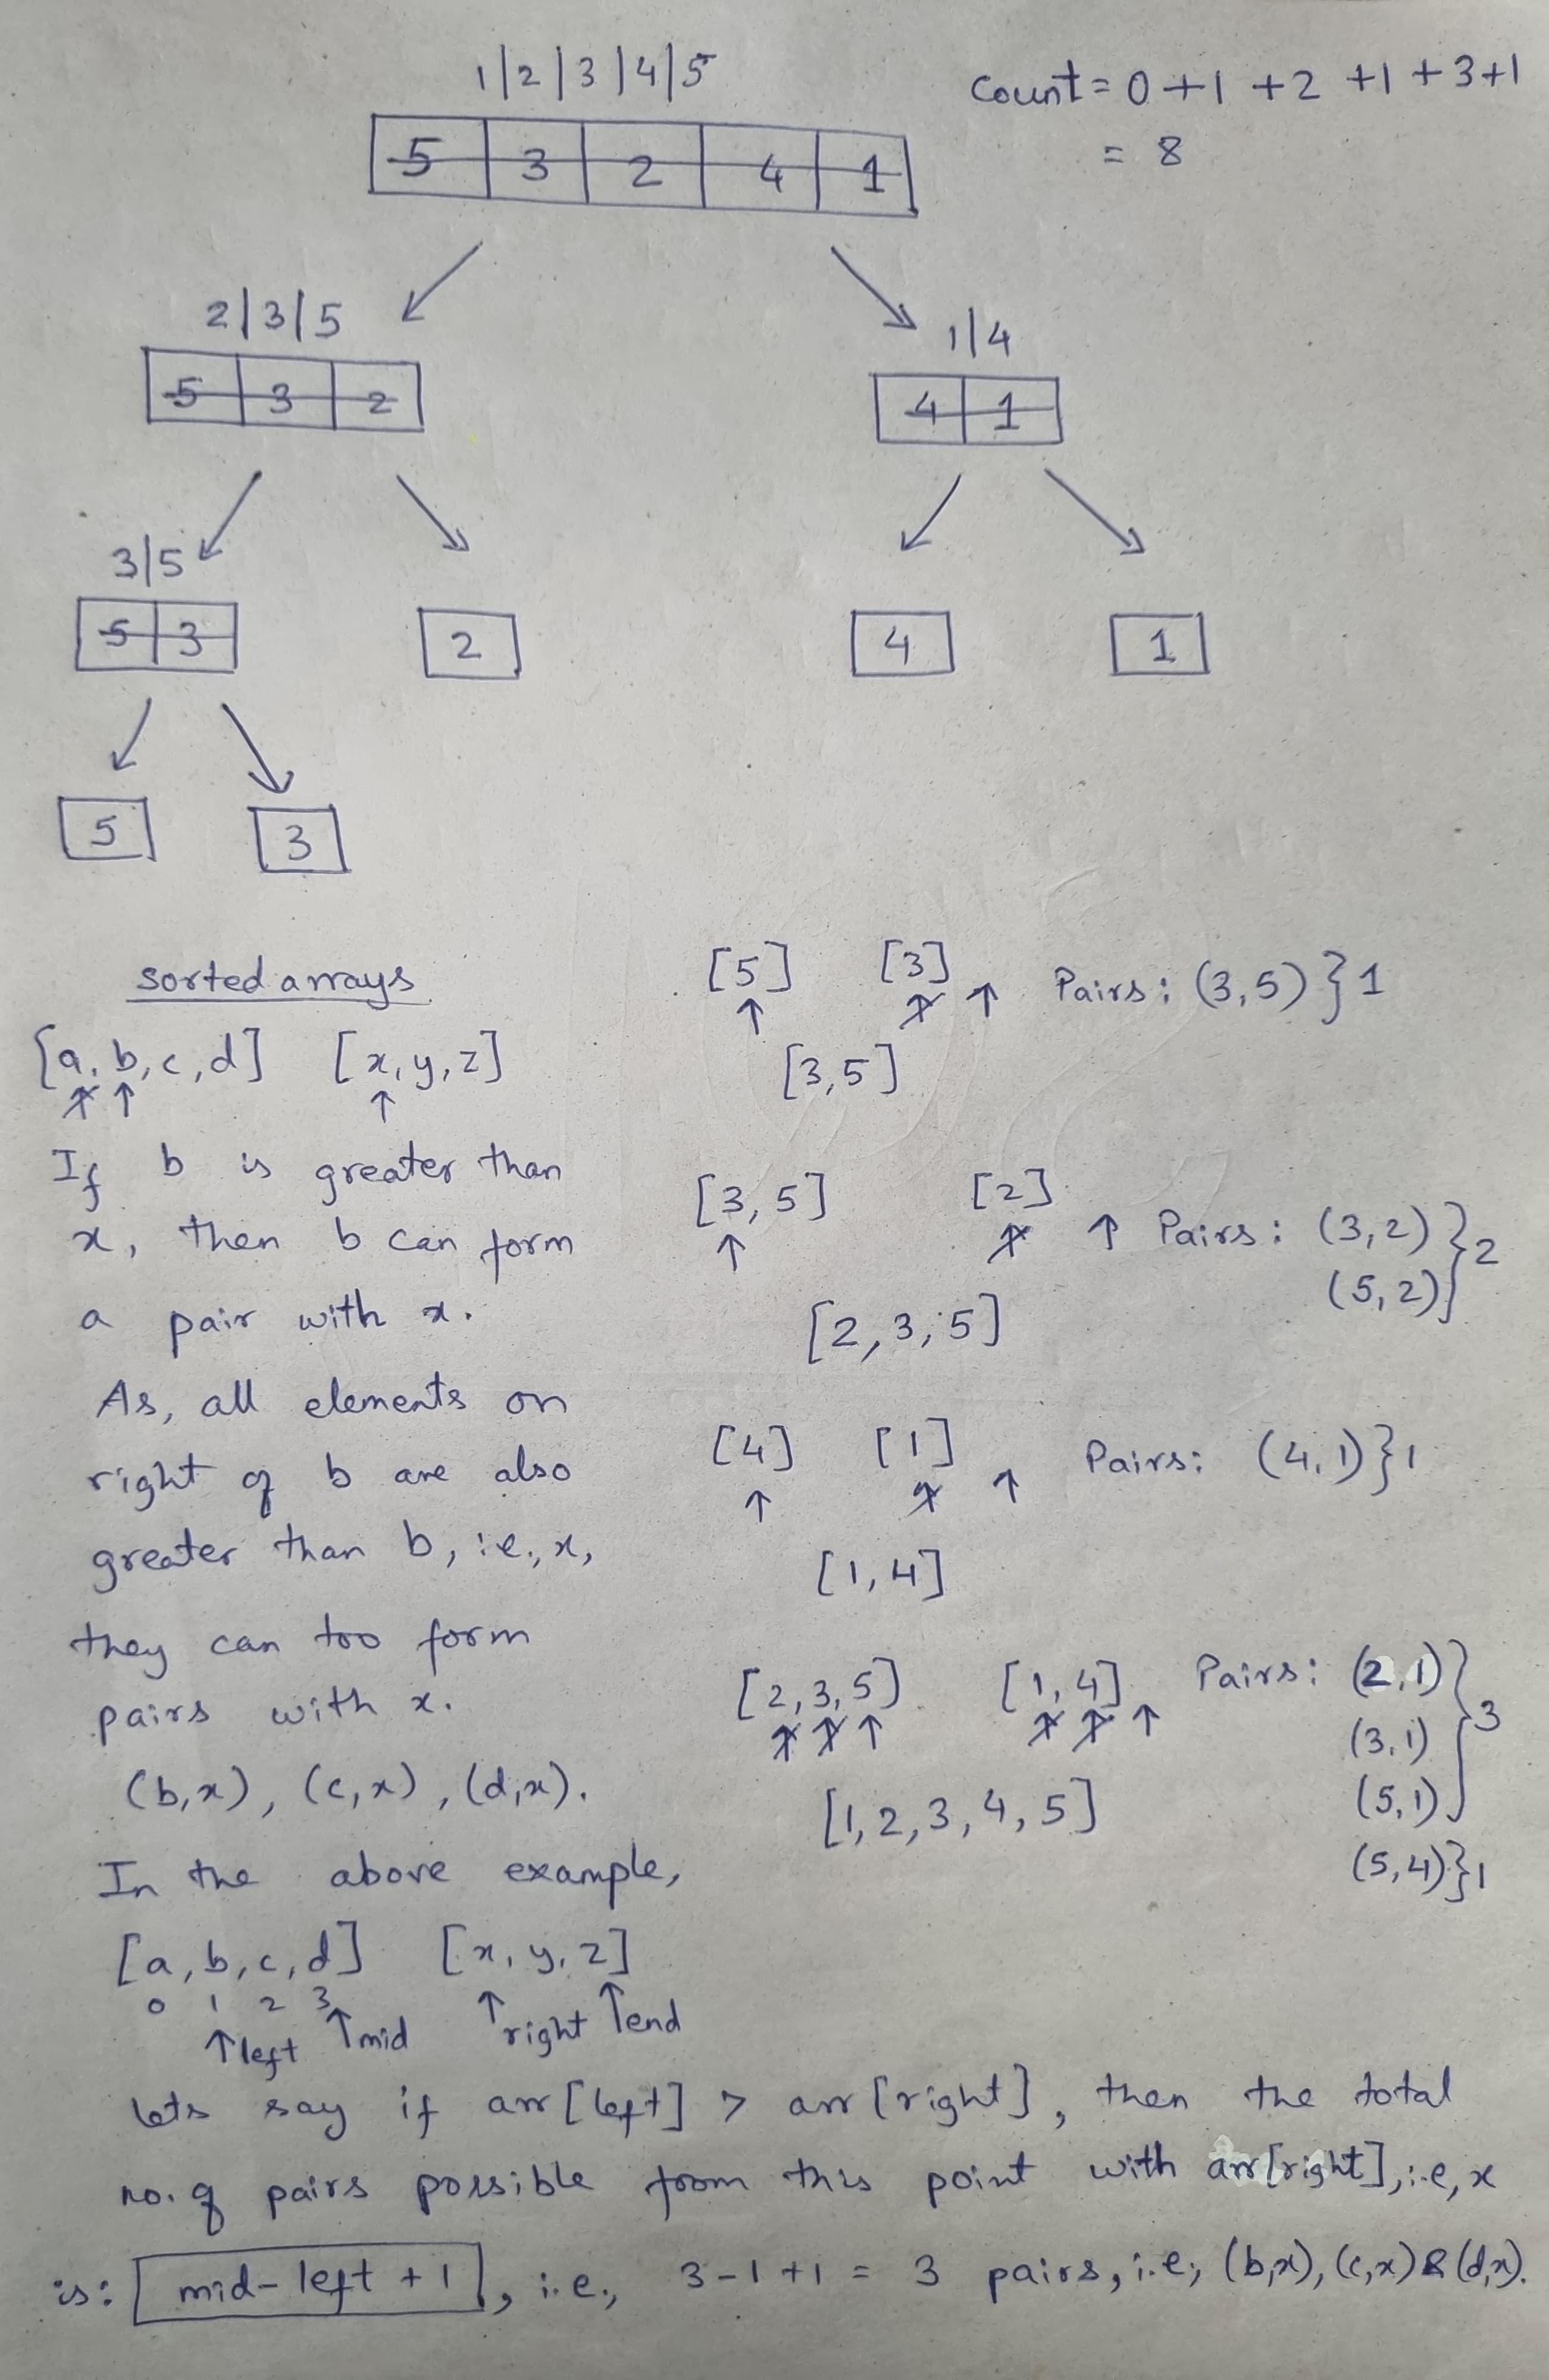 1|2|3|4|5
count = 0 +1 +2 +1 +3+1
= 8
5 3 2 4 1
2|3|5
1|4
5 3 2
4 1
3|5
5 3
2
4
1
5
3
sorted arrays
[a, b, c, d] [x, y, z]
If b is greater than
x, then b can form
a pair with x.
As, all elements on
right of b are also
greater than b, i.e., x,
they can too form
pairs with x.
(b,x), (c,x), (d,x).
In the above example,
[a, b, c, d] [x, y, z]
0 1 2 3
↑left ↑mid ↑right ↑end
[5] [3] Pairs: (3,5) } 1
[3,5]
[3, 5] [2] Pairs: (3,2) } 2
(5,2)
[2, 3, 5]
[4] [1] Pairs: (4,1) } 1
[1,4]
[2,3,5] [1,4] Pairs: (2,1) } 3
(3,1)
(5,1)
[1,2,3,4,5]
(5,4) } 1
lets say if arr[left] > arr[right], then the total
no. of pairs possible from this point with arr[right], i.e, x
is: mid - left + 1, i.e., 3-1+1 = 3 pairs, i.e, (b,x), (c,x) & (d,x).